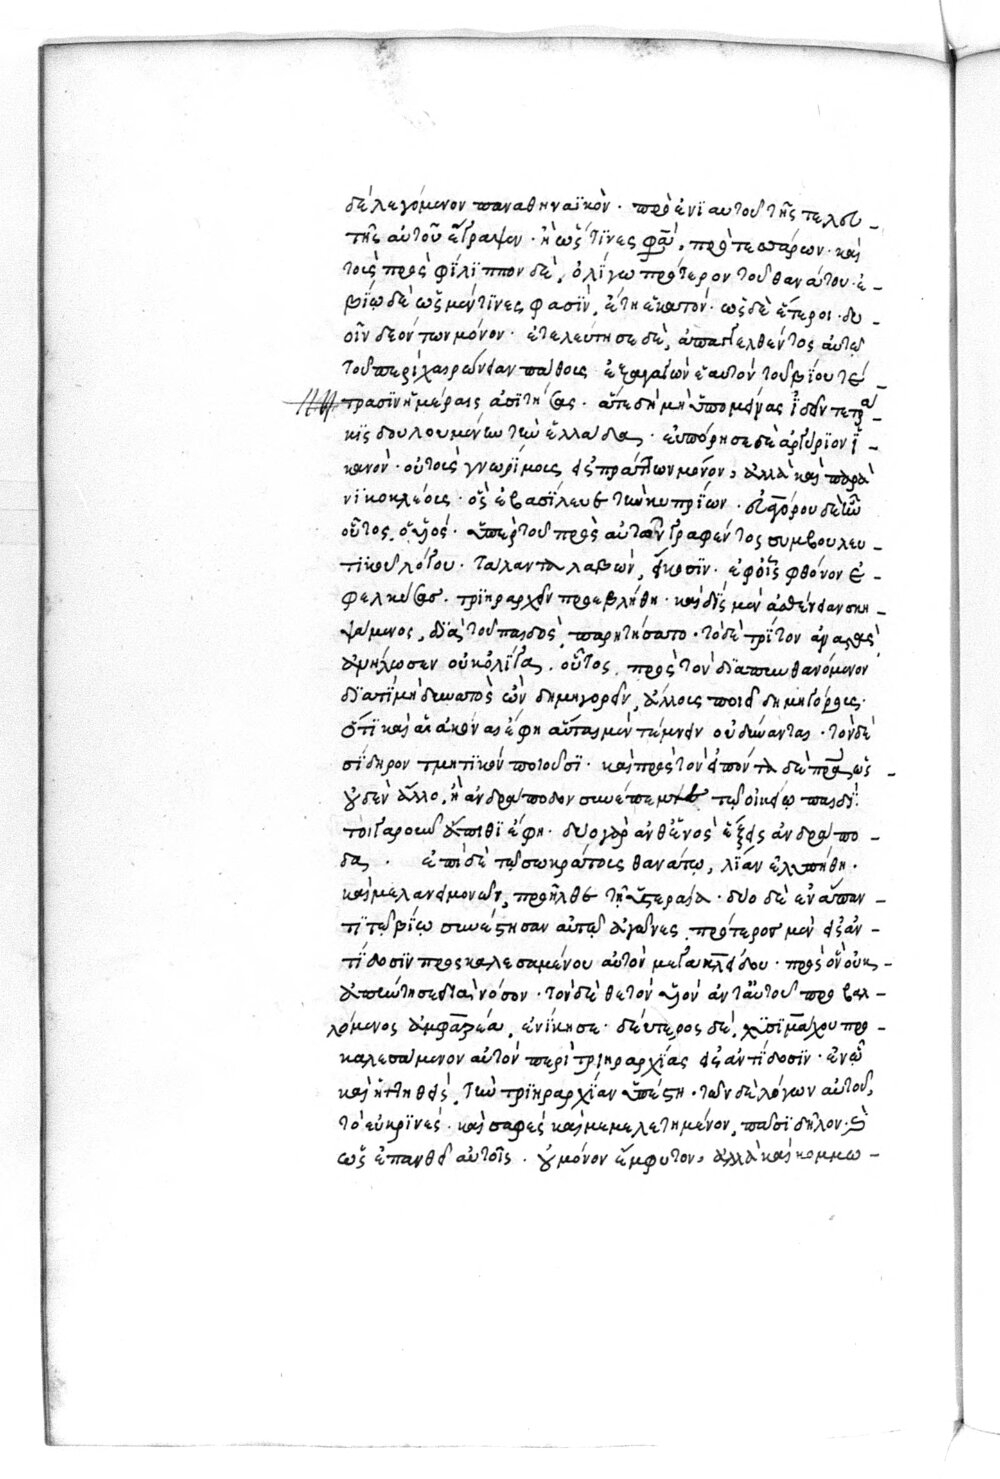 δὲ λεγόμενον παναθηναϊκὸν · πρὸ ἐνϊαυτοῦ τῆς τελευ –
τῆς αὐτοῦ ἔγραψεν · ἢ ὥς τϊνες φασὶ, πρὸ τεσσάρων · καὶ
τοὺς πρὸς φίλϊππον δὲ, ὀλίγω πρότερον τοῦ θανάτου · ἐ –
βΐω δὲ ὡς μέν τϊνες φασϊν, ἔτη ἑκατόν · ὡς δὲ ἕτεροι · δυ –
οῖν δέοντων μόνον · ἐτελεύτησε δὲ, ἀπαγγελθέντος αὐτῶ
τοῦ περὶ χαιρώνειαν πάθους ἐξαγαγὼν ἑαυτὸν τοῦ βίου τέ –
τρασϊν ἡμέραις ἀσϊτήσας · ἅτε δὴ μὴ ὑπομείνας ἰδεῖν τετρα –
κϊς δουλουμένην τὴν ἑλλάδα · εὐπόρησε δὲ ἀργύρϊον ϊ –
κανὸν · οὐ τοὺς γνωρΐμους εἰσπράττων μόνον, ἀλλὰ καὶ παρὰ
νϊκοκλέους · ὃς ἐβασΐλευε τῶν κυπρΐων · εὐαγόρου δὲ ἦν
οὗτος ὁ υἱός · ὑπὲρ τοῦ πρὸς αὐτὸν γραφέντος συμβουλευ –
τϊκοῦ λόγου · τάλαντα λαβὼν, εἴκοσϊν · ἐφ' οἷς φθόνον ἐ –
φελκύσας · τρϊηραρχεῖν προεβλήθη · καὶ δὶς μὲν ἀσθένειαν σκη –
ψάμενος, δϊὰ τοῦ παιδὸς παρῃτήσατο · τὸ δὲ τρΐτον ἀναστὰς
ἀνήλωσεν οὐκ ὀλΐγα · οὗτος πρὸς τὸν δϊαπυνθανόμενον
δϊατί μὴ δυνατὸς ὢν δημηγορεῖν, ἄλλους ποιεῖ δημηγόρους ·
ὅτϊ καὶ αἱ ἀκόναι ἔφη αὗται μὲν τέμνειν οὐ δύνανται · τὸν δὲ
σίδηρον τμητϊκὸν ποιοῦσϊ · καὶ πρὸς τὸν εἰπόντα δὲ πατέρα ὡς –
οὐδὲν ἄλλο, ἢ ἀνδράποδον συνέπεμψε τῶ οἰκείω παιδΐ.
τοιγαροῦν ἄπιθϊ ἔφη · δύο γὰρ ἀνθ' ἑνὸς ἕξεις ἀνδράπο –
δα · ἐπὶ δὲ τῶ σωκράτους θανάτω, λΐαν ἐλυπήθη ·
καὶ μελανειμονῶν, προῆλθε τῆ ὑστεραία · δύο δὲ ἐν ἅπαν –
τϊ τῶ βΐω συνέστησαν αὐτῶ ἀγῶνες πρότερος μὲν εἰς ἀν –
τΐδοσϊν προσκαλεσαμένου αὐτὸν μεγακλείδου · πρὸς ὃν οὐκ –
ἀπήντησε διὰ νόσον · τὸν δὲ θετὸν υἱὸν ἀνταυτοῦ προβαλ –
λόμενος ἀφαρέα, ἐνίκησε · δεύτερος δὲ, λυσϊμάχου προ –
καλεσάμενον αὐτὸν περὶ τρϊηραρχίας εἰς ἀντΐδοσϊν · ἐν ὧ
καὶ ἡττηθεὶς, τὴν τρϊηραρχΐαν ὑπέστη · τῶν δὲ λόγων αὐτοῦ,
τὸ εὐκρϊνές · καὶ σαφὲς καὶ μεμελετημένον, πᾶσϊ δῆλον · καὶ
ὡς ἐπανθεῖ αὐτοῖς · οὐ μόνον ἔμφυτον, ἀλλὰ καὶ κομμω –